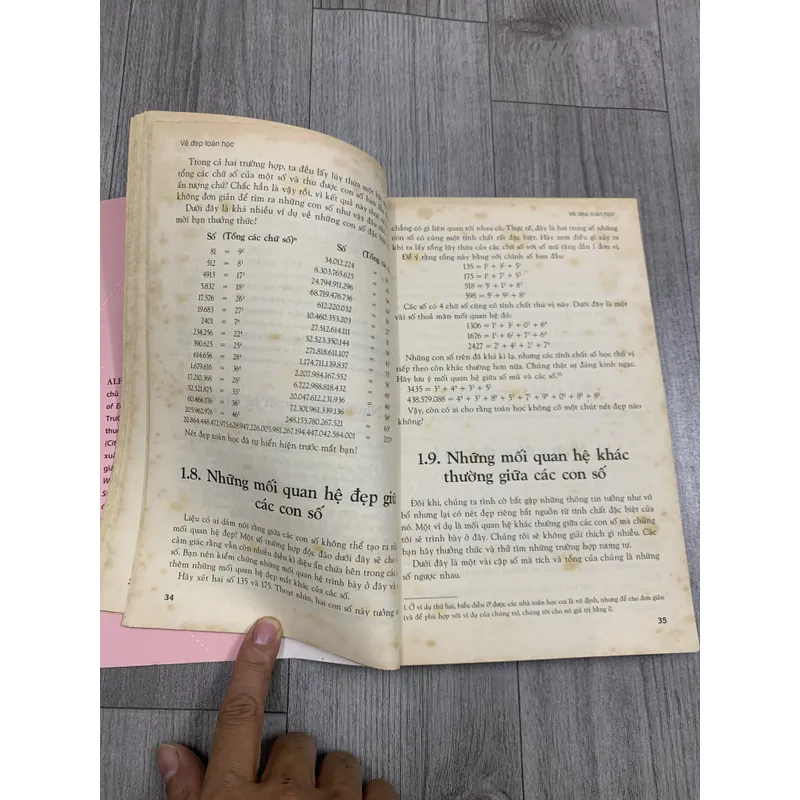 Vẻ đẹp toán học
Trong cả hai trường hợp, ta đều lấy lũy thừa một
tổng các chữ số của một số và thu được con số ban đầu
ấn tượng chứ? Chắc hẳn là vậy rồi, vì kết quả này
không đơn giản để tìm ra những con số như vậy đâu
Dưới đây là khá nhiều ví dụ về những con số đặc
mời bạn thưởng thức!
Số (Tổng các chữ số)ⁿ Số (Tổng các
81 = 9² 34.012.224 =
512 = 8³ 8.303.765.625 =
4913 = 17³ 24.794.911.296 =
5.832 = 18³ 68.719.476.736 =
17.576 = 26³ 612.220.032 =
19.683 = 27³ 10.460.353.203 =
2401 = 7⁴ 27.512.614.111 =
234.256 = 22⁴ 52.523.350.144 =
390.625 = 25⁴ 271.818.611.107 =
614.656 = 28⁴ 1.174.711.139.837 =
1.679.616 = 36⁴ 2.207.984.167.552 =
17.210.368 = 28⁵ 6.722.988.818.432 =
52.521.875 = 35⁵ 20.047.612.231.936 =
60.466.176 = 36⁵ 72.301.961.339.136 =
205.962.976 = 46⁵ 248.155.780.267.521 =
20.864.448.472.975.628.947.226.005.981.267.194.447.042.584.001 = 207²⁰
Nét đẹp toán học đã tự hiển hiện trước mắt bạn!
1.8. Những mối quan hệ đẹp giữ
các con số
Liệu có ai dám nói rằng giữa các con số không thể tạo ra nổ
mối quan hệ đẹp! Một số trường hợp độc đáo dưới đây sẽ cho
cảm giác rằng vẫn còn nhiều điều kì diệu ẩn chứa bên trong các
số. Bạn nên kiểm chứng những mối quan hệ trình bày ở đây và
thêm những mối quan hệ đẹp mắt khác của các số.
Hãy xét hai số 135 và 175. Thoạt nhìn, hai con số này tưởng
34
Vẻ đẹp toán học
chẳng có gì liên quan tới nhau cả. Thực tế, đây là hai trong số những
con số có cùng một tính chất rất đặc biệt. Hãy xem điều gì xảy ra
khi ta lấy tổng lũy thừa của các chữ số với số mũ tăng dần 1 đơn vị.
Để ý rằng tổng này bằng với chính số ban đầu:
135 = 1¹ + 3² + 5³
175 = 1¹ + 7² + 5³
518 = 5¹ + 1² + 8³
598 = 5¹ + 9² + 8³
Các số có 4 chữ số cũng có tính chất thú vị này. Dưới đây là một
vài số thoả mãn mối quan hệ đó:
1306 = 1¹ + 3² + 0³ + 6⁴
1676 = 1¹ + 6² + 7³ + 6⁴
2427 = 2¹ + 4² + 2³ + 7⁴
Những con số trên đã khá kì lạ, nhưng các tính chất số học thú vị
tiếp theo còn khác thường hơn nữa. Chúng thật sự đáng kinh ngạc.
Hãy lưu ý mối quan hệ giữa số mũ và các số.⁽¹⁾
3435 = 3³ + 4⁴ + 3³ + 5⁵
438.579.088 = 4⁴ + 3³ + 8⁸ + 5⁵ + 7⁷ + 9⁹ + 0⁰ + 8⁸ + 8⁸.
Vậy, còn có ai cho rằng toán học không có một chút nét đẹp nào
không!
1.9. Những mối quan hệ khác
thường giữa các con số
Đôi khi, chúng ta tình cờ bắt gặp những thông tin tưởng như vô
bổ nhưng lại có nét đẹp riêng bắt nguồn từ tính chất đặc biệt của
nó. Một ví dụ là mối quan hệ khác thường giữa các con số mà chúng
tôi sẽ trình bày ở đây. Chúng tôi sẽ không giải thích gì nhiều. Các
bạn hãy thưởng thức và thử tìm những trường hợp tương tự.
Dưới đây là một vài cặp số mà tích và tổng của chúng là những
số ngược nhau.
1. Ở ví dụ thứ hai, biểu diễn 0⁰ được các nhà toán học coi là vô định, nhưng để cho đơn giản
(và để phù hợp với ví dụ của chúng ta), chúng tôi cho nó giá trị bằng 0.
35